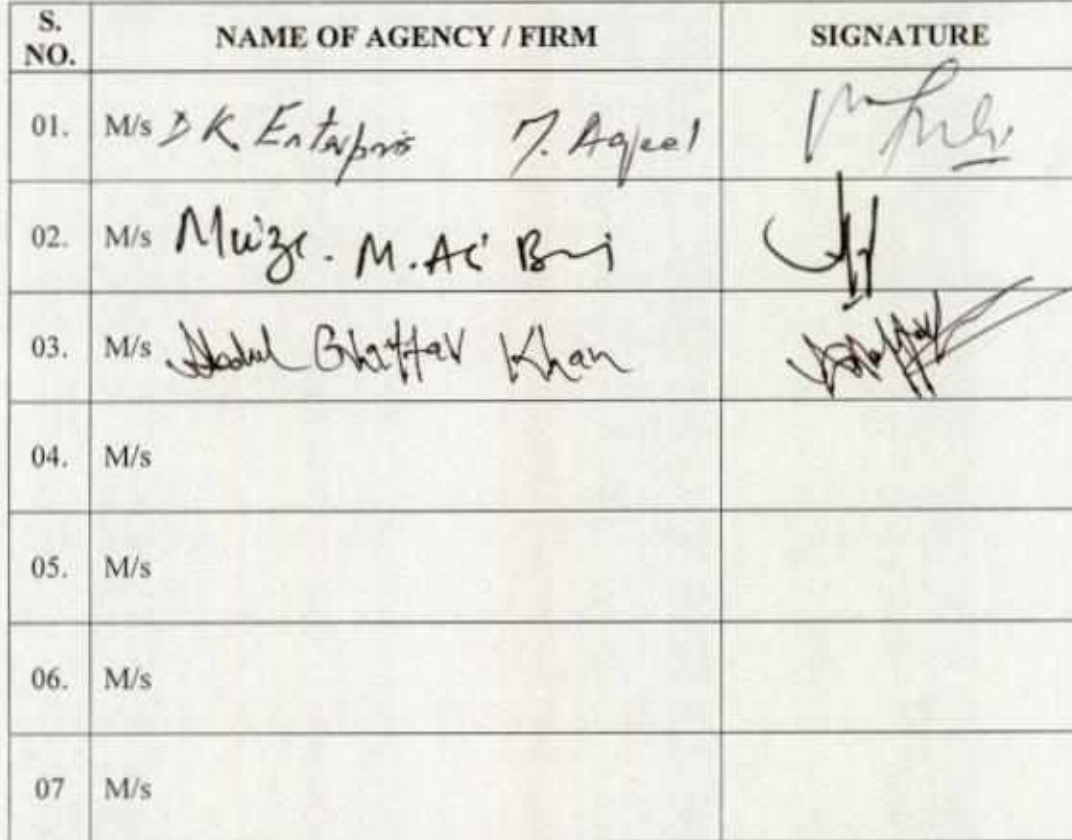 S. NO. NAME OF AGENCY / FIRM SIGNATURE
01. M/s DK Enterpris M. Aqeel
02. M/s M. Ali
03. M/s Abdul Ghaffar Khan
04. M/s
05. M/s
06. M/s
07 M/s